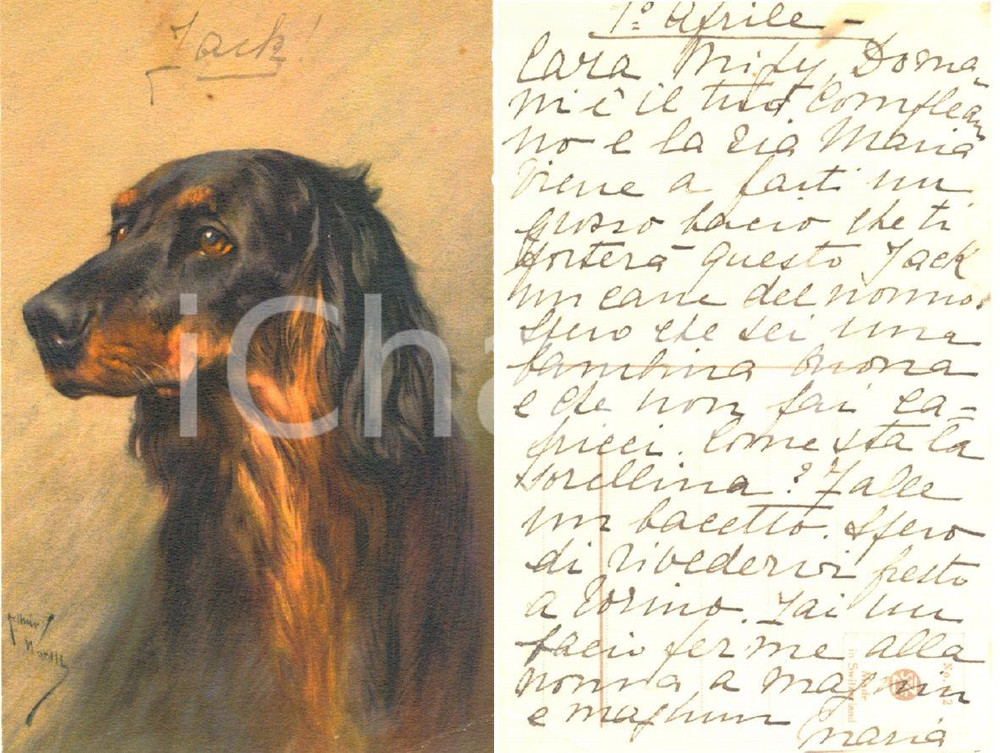 Jack!
iCha
1º Aprile -
Cara Midy, Doma
ni è il tuo Complean
no e la zia Maria
viene a farti un
grosso bacio che ti
porterà questo Jack
un cane del nonno.
Spero che sei una
bambina buona
e che non fai ca-
pricci. Come sta la
sorellina? Falle
un bacetto. Spero
di rivedervi presto
a Torino. Fai un
bacio per me alla
nonna, a
e
Maria
No. 2
Made
in Switzerland